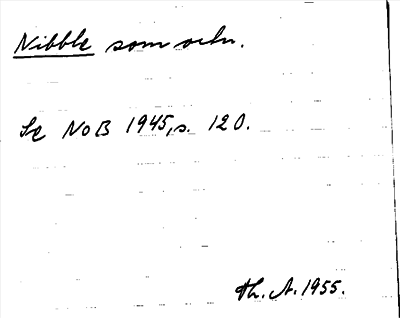 Nibble som ortn.
Se NoB 1945, s. 120.
Th. A. 1955.